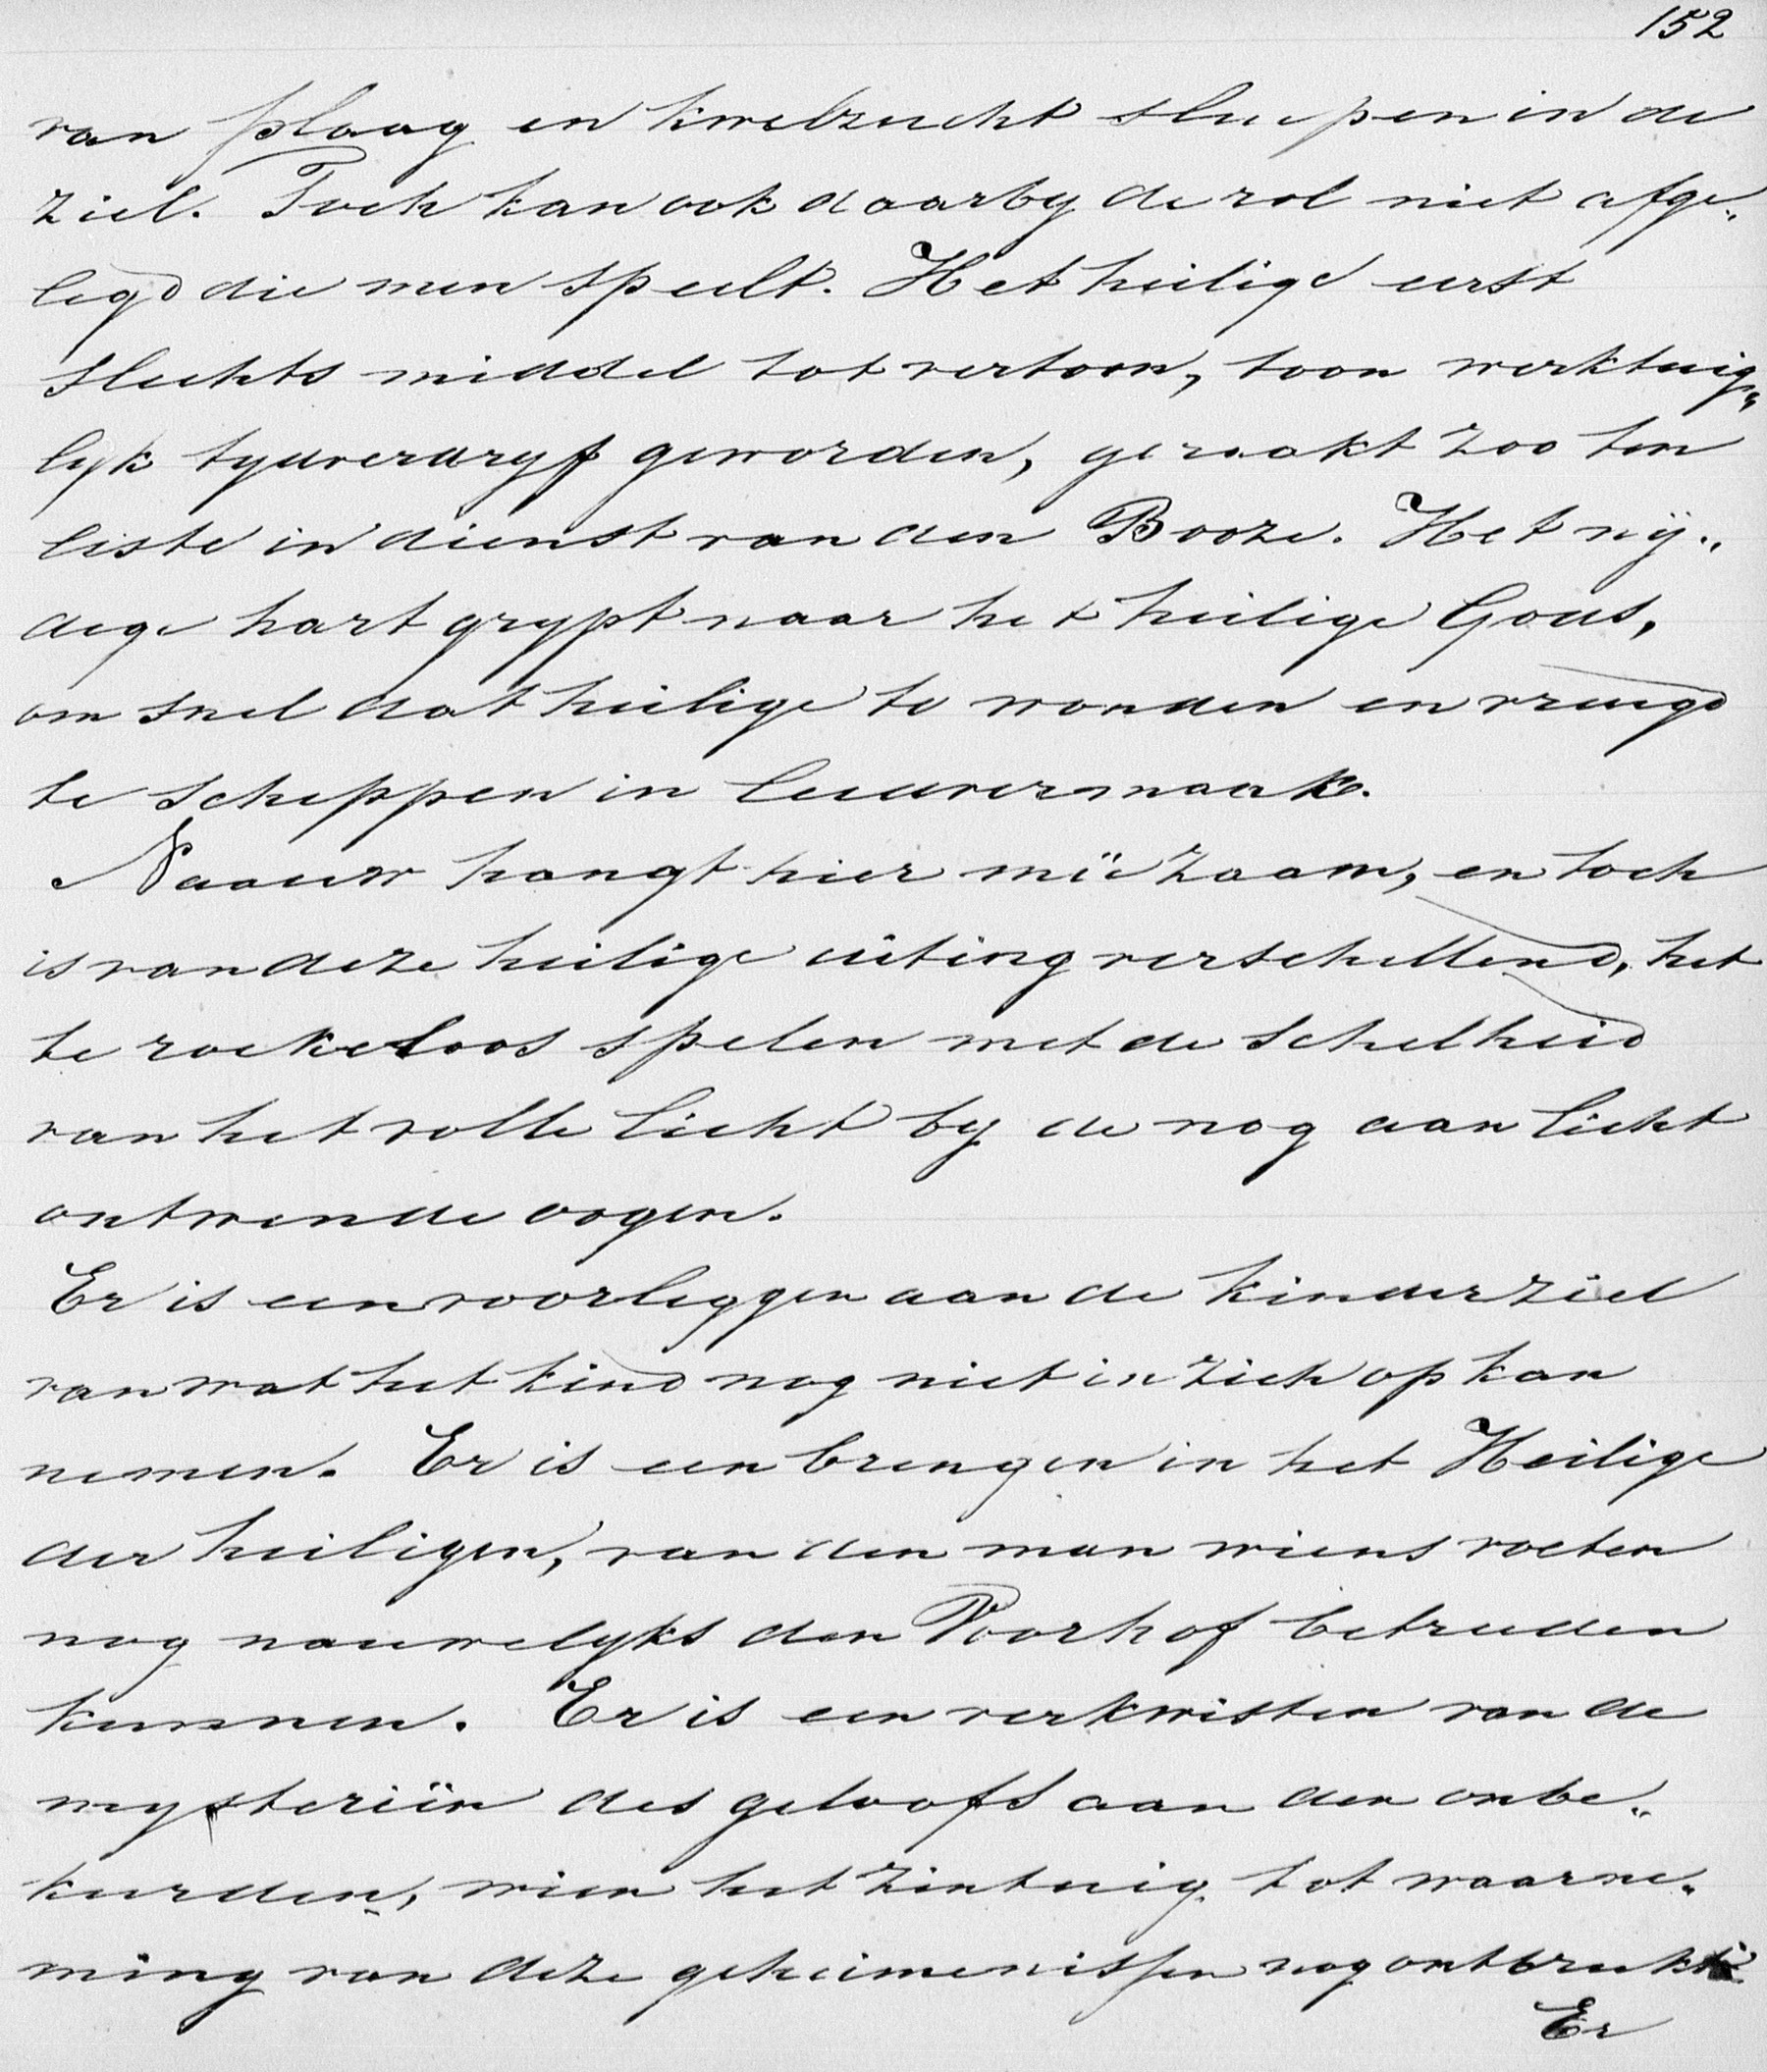 152
van plaag en kwelzucht sluipen in de
ziel. Toch kan ook daarby de rol niet afge„
legd die men speelt. Het heilige eerst
slechts middel tot vertoon, toen werktuig„
lyk tydverdryf geworden, geraakt zoo ten
leste in dienst van den Booze. Het nij„
dige hart grypt naar het heilige Gods,
om snel dat heilige te wonden en vreugd
te scheppen in leedvermaak.
Naauw hangt hier meê zaam, en toch
is van deze heilige uiting verschillend, het
te roekeloos spelen met de schelheid
van het volle licht by de nog aan licht
ontwende oogen.
Er is een voorleggen aan de kinderziel
van wat het kind nog niet in zich op kan
nemen. Er is een brengen in het Heilige
der heiligen, van den man wiens voeten
nog nauwelyks den Voorhof betreden
kunnen. Er is een verkwisten van de
mysteriën des geloofs aan den onbe„
keerden, wien het zintuig tot waarne„
ming van deze geheimenissen nog ontbreekt.
Er